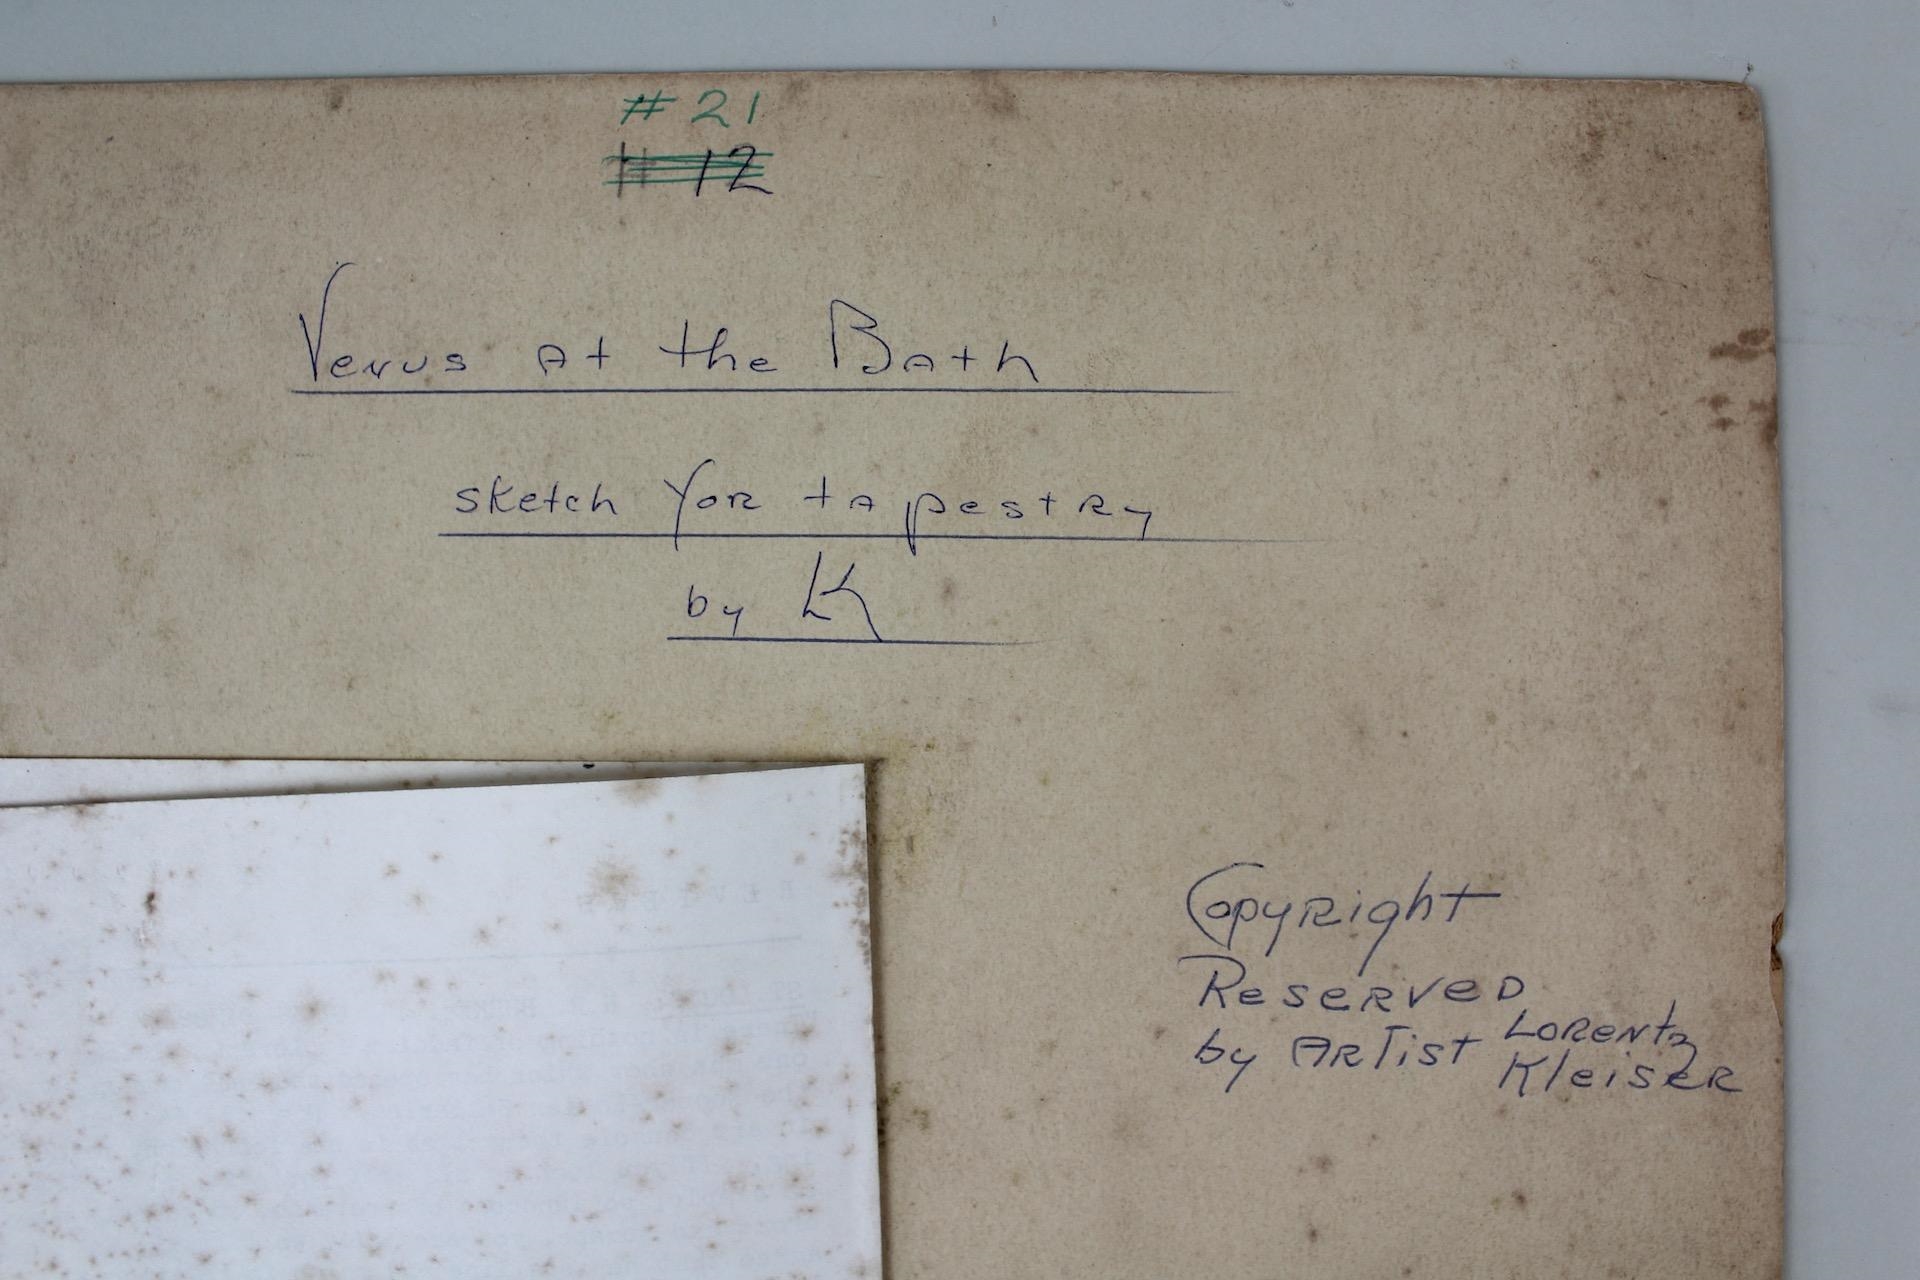 # 21
# 12
Venus at the Bath
sketch for tapestry
by K
Copyright
Reserved
by Artist Lorentz
Kleiser